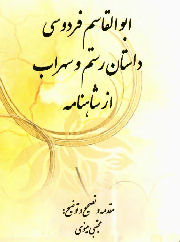 ابوالقاسم فردوسی
داستان رستم و سهراب
از شاهنامه
مقدمه و تصحیح و توضیح:
مجتبی مینوی